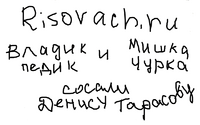 Risovach.ru
Владик и Мишка
педик чурка
сосали
Денису Тарасову